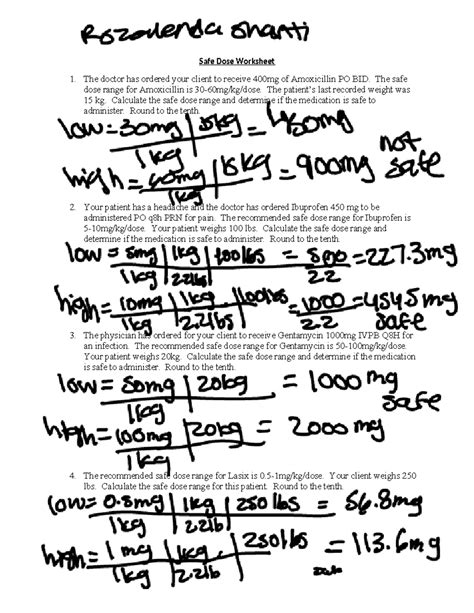 Rozalenda Shanti
Safe Dose Worksheet
1. The doctor has ordered your client to receive 400mg of Amoxicillin PO BID. The safe
dose range for Amoxicillin is 30-60mg/kg/dose. The patient's last recorded weight was
15 kg. Calculate the safe dose range and determine if the medication is safe to
administer. Round to the tenth.
low = 30mg | 15kg = 450mg
1kg
not
high = 60mg | 15kg = 900mg safe
1kg
2. Your patient has a headache and the doctor has ordered Ibuprofen 450 mg to be
administered PO q8h PRN for pain. The recommended safe dose range for Ibuprofen is
5-10mg/kg/dose. Your patient weighs 100 lbs. Calculate the safe dose range and
determine if the medication is safe to administer. Round to the tenth.
low = 5mg | 1kg | 100lbs = 500 = 227.3mg
1kg | 2.2lb | 2.2
high = 10mg | 1kg | 100lbs = 1000 = 454.5mg
1kg | 2.2lb | 2.2 safe
3. The physician has ordered for your client to receive Gentamycin 1000mg IVPB Q8H for
an infection. The recommended safe dose range for Gentamycin is 50-100mg/kg/dose.
Your patient weighs 20kg. Calculate the safe dose range and determine if the medication
is safe to administer. Round to the tenth.
low = 50mg | 20kg = 1000mg
1kg safe
high = 100mg | 20kg = 2000mg
1kg
4. The recommended safe dose range for Lasix is 0.5-1mg/kg/dose. Your client weighs 250
lbs. Calculate the safe dose range for this patient. Round to the tenth.
low = 0.5mg | 1kg | 250lbs = 56.8mg
1kg | 2.2lb
high = 1mg | 1kg | 250lbs = 113.6mg
1kg | 2.2lb